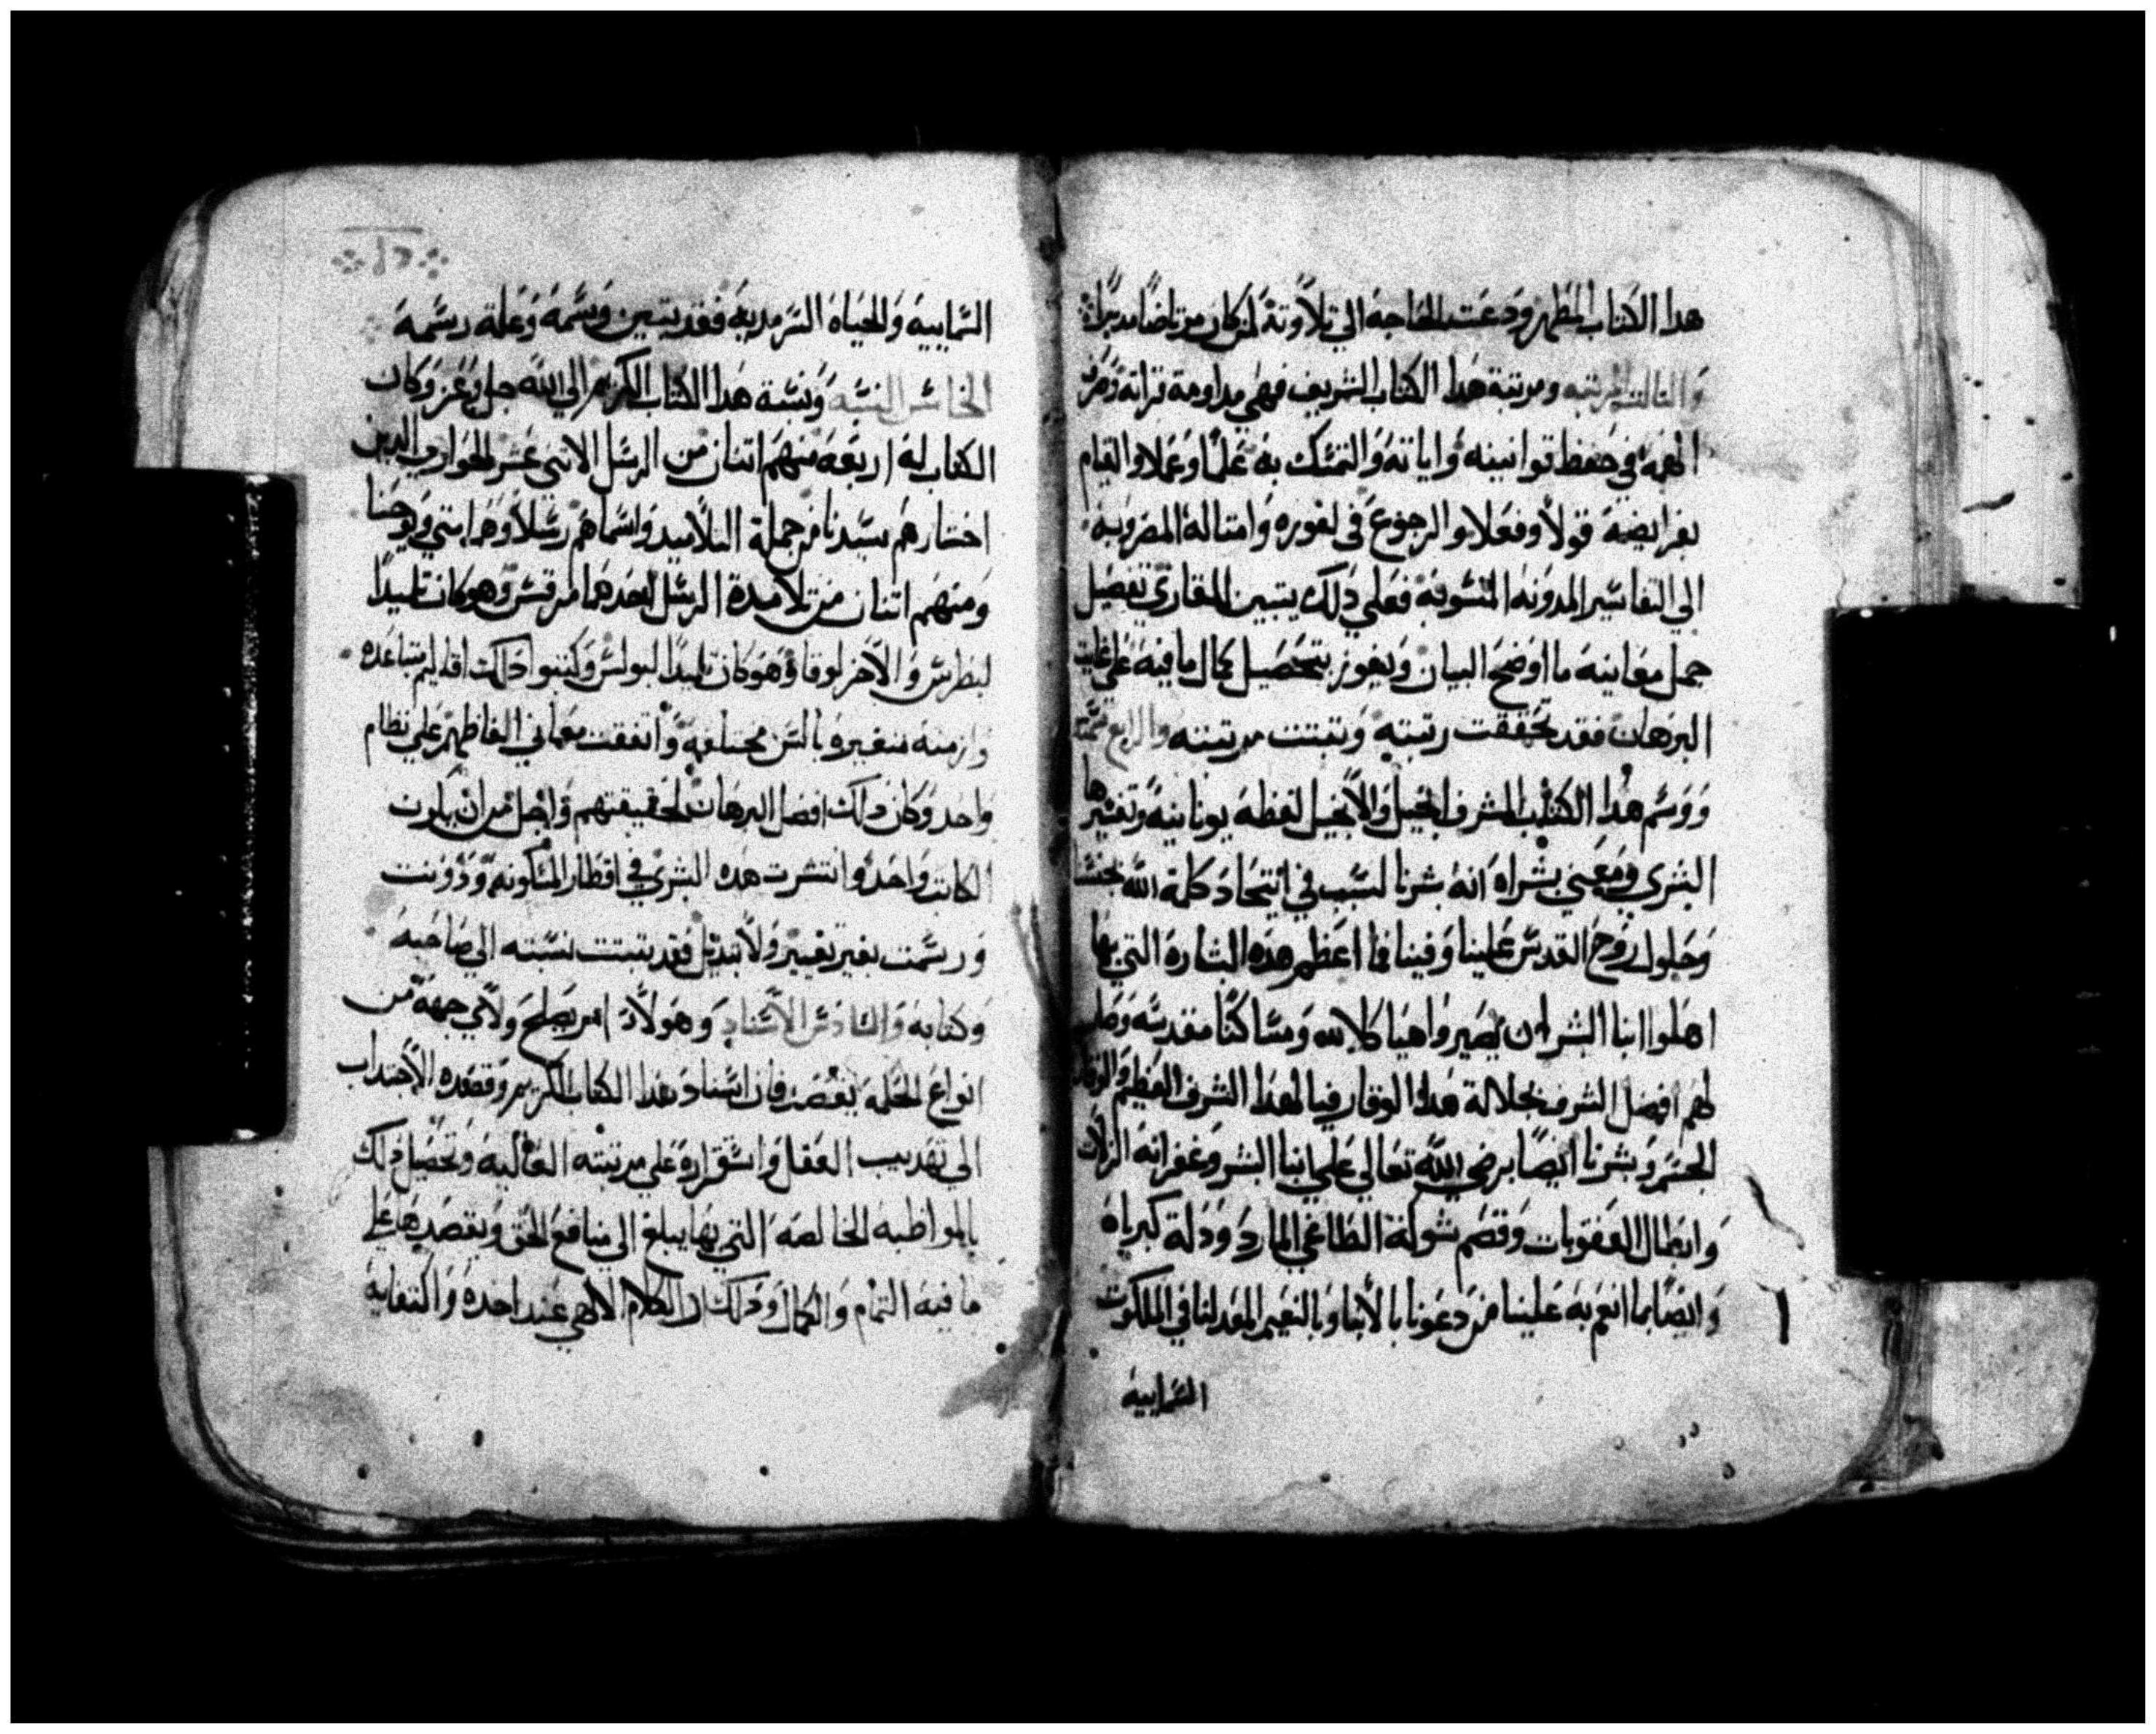 هدا الكتاب المطهر ودعت الحاجه الي تلاوته لمن كان مرتاضا مدبرا
والتالت المرتبه ومرتبة هدا الكتاب الشريف فهي مداومة قراته وصرف
الهمه في حفظ قوانينه واياته والتمسك به علما وعملا والقيام
بفرايضه قولا وفعلا والرجوع في لغوره وامتاله المضروبه
الي التفاسير المدونه المنسوبه فعلي دلك يتبين للقاري تفصيل
جمل معانيه ما اوضح البيان ويفوز بتحصيل كمال ما فيه علي غايت
البرهان فقد تحققت رتبته وتبتت مرتبته والرابع سمته
ووسم هدا الكتاب المشرف انجيل والانجيل لفظه يونانيه وتفسيرها
البشري ومعني بشراه انه بشرنا لسبب في اتحاد كلمة الله بجنسنا
وحلول روح القدس علينا وفينا فما اعظم هده البشاره التي بها
اهلوا ابنا البشر ان يصيروا هياكلا لله ومساكنا مقدسه
لهم افضل الشرف بجلالة هدا الوقار فيا لهدا الشرف العظيم والوقار
الجسم وبشرنا ايضا برضي الله تعالي علي ابنا البشر وغفرانه الزلات
وابطال العقوبات وقصم شوكة الطاغي المارد ودلة كبرياه
وايضا بما انعم به علينا من دعونا بالابنا وبالنعيم المعد لنا في الملكوت
السماييه
السماييه والحياه السرمديه فقد تبين وسمه وعلة رسمه
الخامس النسبه ونسبة هدا الكتاب الكريم الي الله جل وعز وكان
الكتاب له اربعه منهم اتنان من الرسل الاتني عشر الحواري الدين
اختارهم سيدنا من جملة التلاميد واسماهم رسلا وهما متي ويوحنا
ومنهم اتنان من تلامدة الرسل احدهما مرقس وهو كان تلميدا
لبطرس والاخر لوقا وهو كان تلميدا لبولس وكتبوا دلك اقاليم متباعده
وازمنه متغيره بالسن مختلفه واتفقت معاني الفاظهم علي نظام
واحد وكان دلك افضل البرهان لحقيقتهم واجل من ان يكون
الكاتب واحد وانتشرت هده البشري في اقطار المسكونه ودونت
ورسمت بغير تغيير ولا تبديل فقد تبتت نسبته الي صاحبه
وكتابه والسادس الاسناد وهولاد امر يصلح ولاي جهة من
انواع الحكمه يقصد فان اسناد هدا الكتاب الكريم وقصده الاجتداب
الي تهديب العقل واستقراره علي مرتبته العاليه وتحصيل دلك
بالمواظبه الخالصه التي بها يبلغ الي منافع الحق ويقصد بها علي
ما فيه التمام والكمال ودلك ان الكلام الاهي عند اخده والكفايه